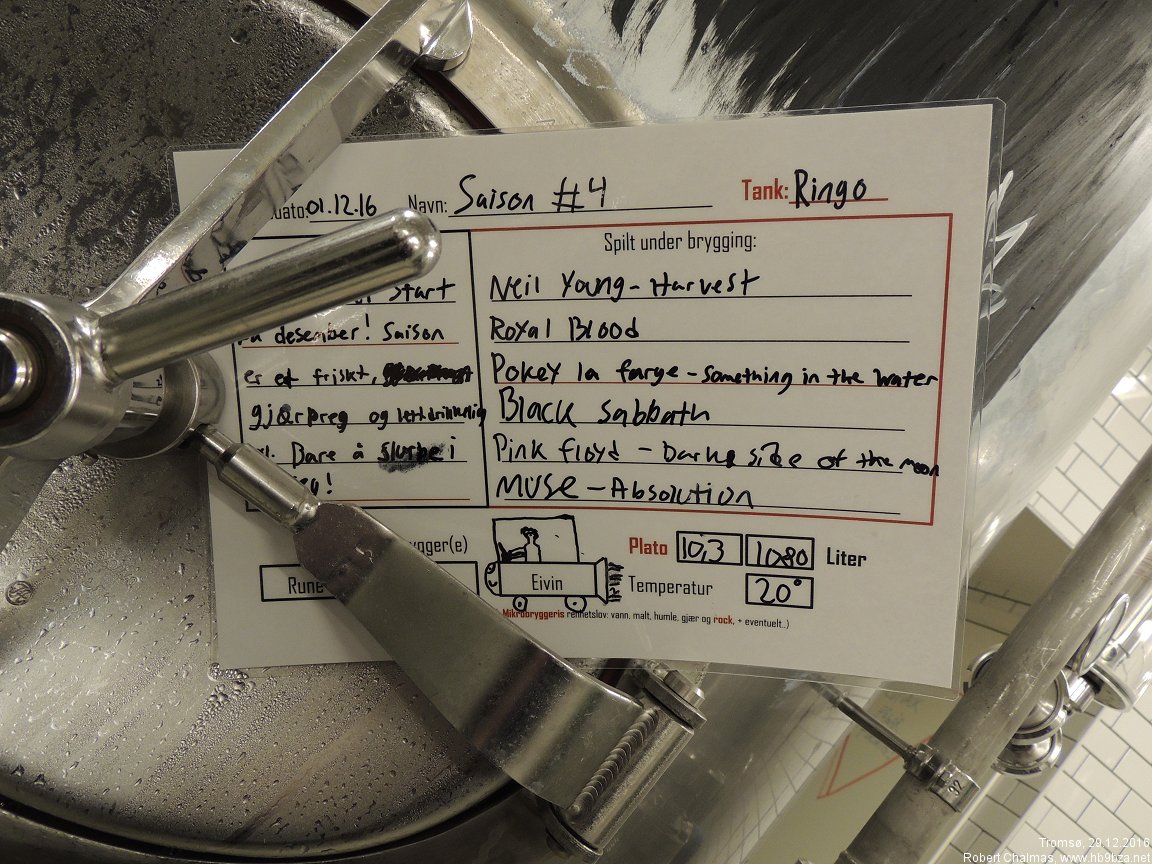 dato: 01.12.16 Navn: Saison #4 Tank: Ringo
start
desember! Saison
er et friskt,
gjærpreg og lettdrikkelig
Bare å slurpe i
Spilt under brygging:
Neil Young - Harvest
Royal Blood
Pokey la farge - something in the water
Black sabbath
Pink floyd - Dark side of the moon
MUSE - Absolution
Rune
Eivin
Plato 10,3 1080 Liter
Temperatur 20°
Mikrobryggeris renhetslov: vann, malt, humle, gjær og rock, + eventuelt..)
92
Tromsø, 29.12.2016
Robert Chalmas, www.hb9bza.net